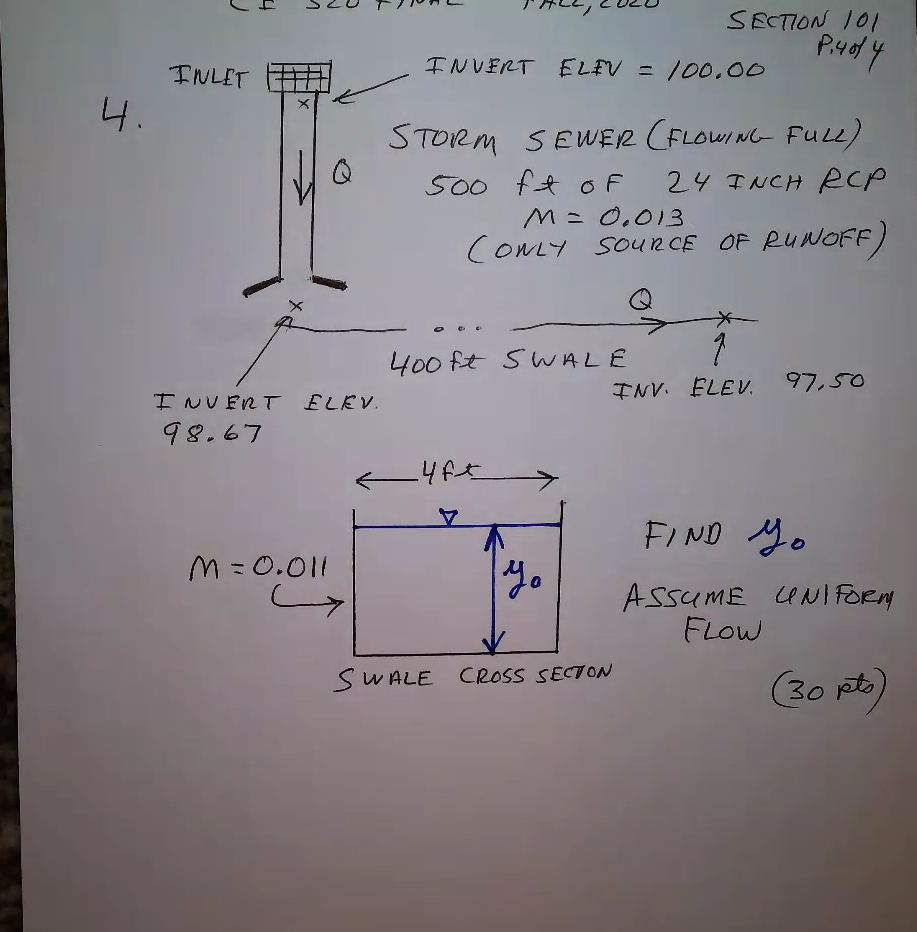 CE 520 FINAL FALL, 2020
SECTION 101
P. 4 of 4
INLET
INVERT ELEV = 100.00
4.
STORM SEWER (FLOWING FULL)
Q
500 ft OF 24 INCH RCP
n = 0.013
(ONLY SOURCE OF RUNOFF)
Q
...
400 ft SWALE
INV. ELEV. 97.50
INVERT ELEV.
98.67
4 ft
FIND yo
n = 0.011
yo
ASSUME UNIFORM
FLOW
SWALE CROSS SECTON
(30 pts)